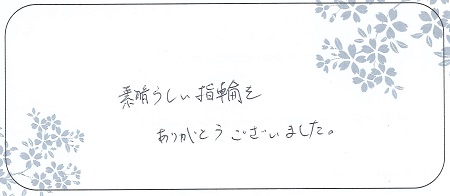 素晴らしい指輪を
ありがとうございました。